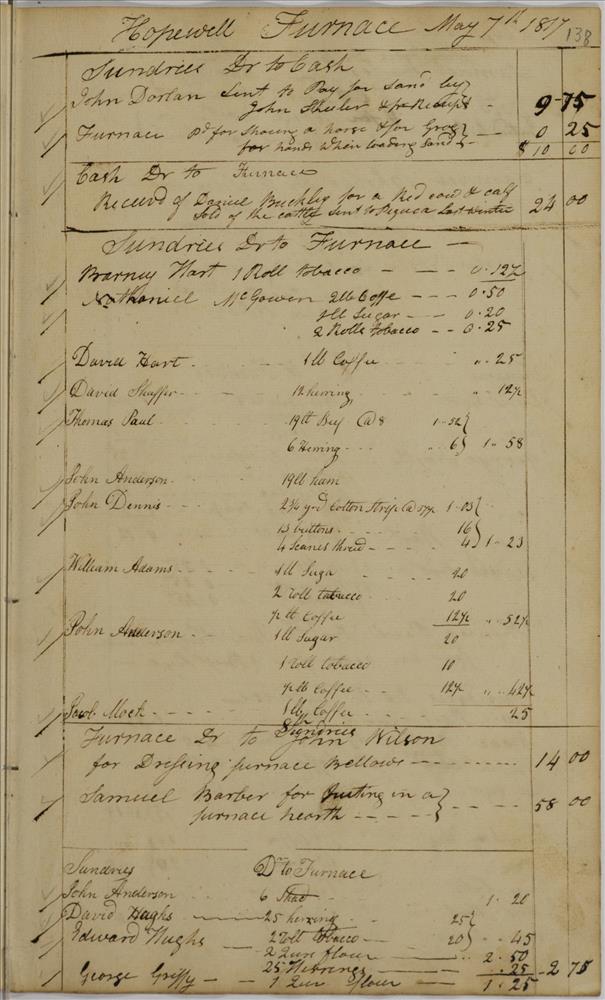 Hopewell Furnace May 7th 1817 138
Sundries Dr to Cash
John Dorlan Sent to Pay for Sand by
John Sheeler & pr Receipt - 9-75
Furnace Pd for Shoeing a horse & for Grog
for hands when loading Sand - 0 25
$ 10 00
Cash Dr to Furnace
Received of Daniel Buckley for a Red cow & calf
Sold of the cattle Sent to Pequea Last winter 24 00
Sundries Dr to Furnace
Barney Hart 1 Roll tobacco - - - 0.12½
Nathaniel McGowen 2 lb Coffe - - - 0.50
1 lb Sugar - - 0.20
2 Rolls tobacco - - 0.25
David Hart 1 lb Coffee " 25
David Shaffer 12 herring " 12½
Thomas Paul 19 lb Beef @ 8 1 - 52
6 Herring 6 1 " 58
John Anderson 19 lb ham
John Dennis 2¾ yrd Cotton Strip @ 37½ 1-03
13 buttons 16
4 Scanes thred 4 1 - 23
William Adams 1 lb Suga 20
2 roll tobacco 20
½ lb Coffee 12½ " 52½
John Anderson 1 lb Sugar 20
1 roll tobacco 10
½ lb Coffee 12½ " 42½
Jacob Mock 1 lb Coffee 25
Furnace Dr to Sundries
John Wilson
for Dressing furnace Bellows 14 00
Samuel Barber for Puting in a
furnace hearth 58 00
Sundries Dr to Furnace
John Anderson 6 Shad 1 - 20
David Hughs 25 herring 25
Edward Hughs 2 roll tobacco 20 " 45
2 Qur flour 2.50
25 Herrings .25 2 75
George Griffy 1 Qur flour 1.25